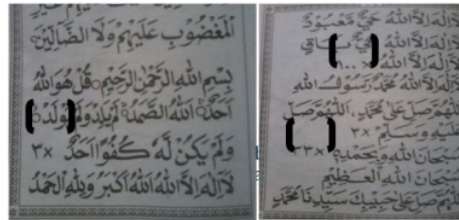 الْمَغْضُوْبِ عَلَيْهِمْ وَلَا الضَّالِّيْنَ
بِسْمِ اللهِ الرَّحْمٰنِ الرَّحِيْمِ قُلْ هُوَ اللهُ
اَحَدٌ اَللهُ الصَّمَدُ لَمْ يَلِدْ يُوْلَدْ
وَلَمْ يَكُنْ لَهُ كُفُوًا اَحَدٌ ×٣
لَا اِلٰهَ اِلَّا اللهُ اَللهُ اَكْبَرُ وَلِلّٰهِ الْحَمْدُ
لَا اِلٰهَ اِلَّا اللهُ حَيٌّ مَعْبُوْدٌ
لَا اِلٰهَ اِلَّا اللهُ حَيٌّ بَاقِي
لَا اِلٰهَ اِلَّا اللهُ ×١٠٠
لَا اِلٰهَ اِلَّا اللهُ مُحَمَّدٌ رَسُوْلُ اللهِ
اَللّٰهُمَّ صَلِّ عَلٰى مُحَمَّدٍ، اَللّٰهُمَّ صَلِّ
عَلَيْهِ وَسَلِّمْ ×٣
سُبْحَانَ اللهِ وَبِحَمْدِهِ ×٣٣
سُبْحَانَ اللهِ الْعَظِيْمِ
اَللّٰهُمَّ صَلِّ عَلٰى حَبِيْبِكَ سَيِّدِنَا مُحَمَّدٍ